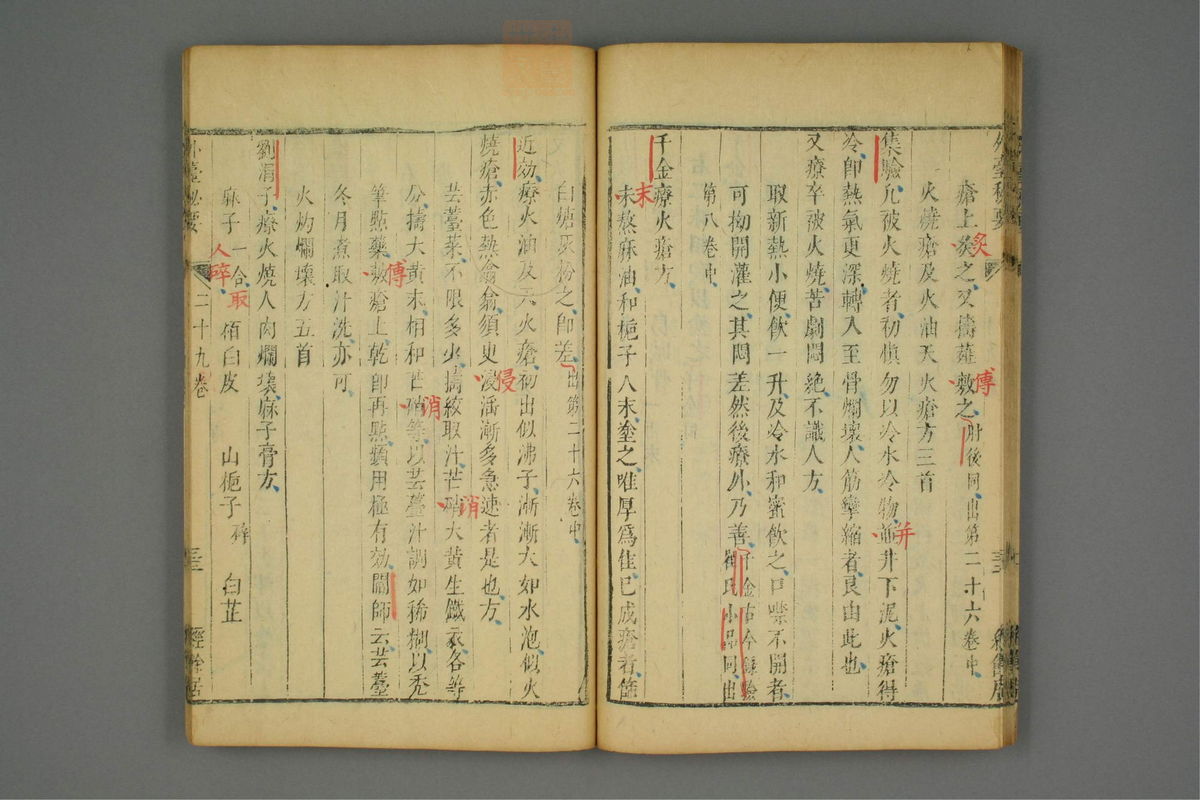 瘡上炙之又擣薤敷之肘後同出第二十六卷中
火燒瘡及火油天火瘡方三首
集驗凡被火燒者初愼勿以冷水冷物筋井下泥火瘡得
冷卽熱氣更深轉入至骨爛壞人筋攣縮者良由此也
又療卒被火燒苦劇悶絶不識人方
取新熱小便飲一升及冷水和蜜飲之口噤不開者
可拗開灌之其悶差然後療外乃善千金古今錄驗崔氏小品同出
第八卷中
千金療火瘡方
末熬麻油和梔子人末塗之唯厚爲佳已成瘡者篩
白糖灰粉之卽差出第二十六卷中
近効療火油及天火瘡初出似沸子漸漸大如水泡似火
燒瘡赤色熱翕翕須臾浸淫漸多急速者是也方
芸薹菜不限多少擣絞取汁芒硝大黃生鐵衣各等
分擣大黃末相和芒硝等以芸薹汁調如稀糊以禿
筆點藥敷瘡上乾卽再點頻用極有効閻師云芸薹
冬月煮取汁洗亦可
火灼爛壞方五首
劉涓子療火燒人肉爛壞麻子膏方
麻子一合 栢白皮 山梔子碎 白芷
外臺秘要
二十九卷
三三
經餘居
外臺秘要
炙
傅
并
末
侵
消
消
傅
人
碎
取